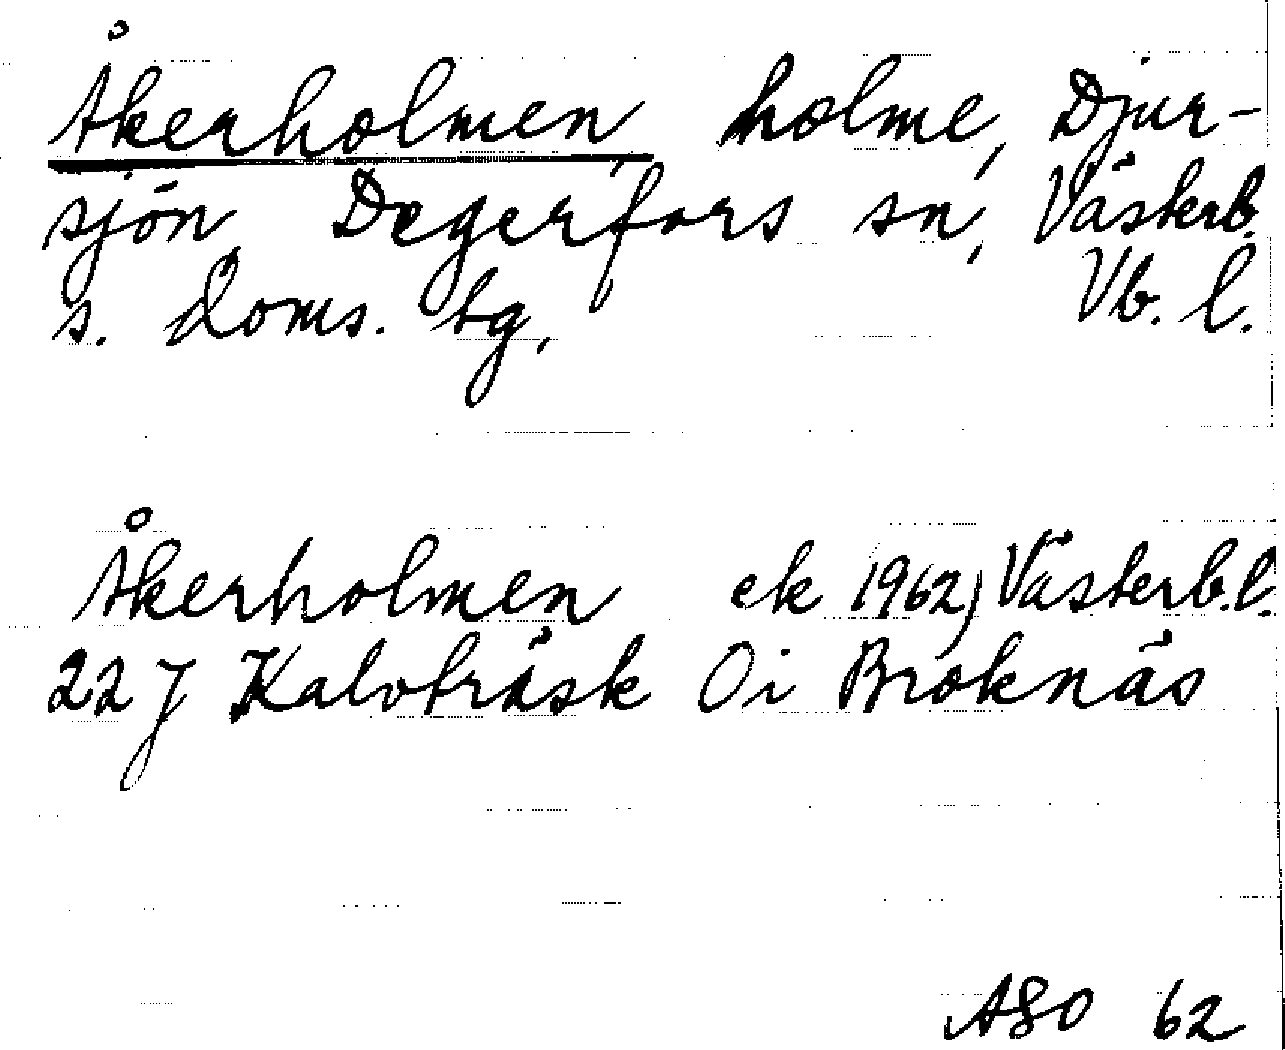 Åkerholmen, holme, Djur-
sjön, Degerfors sn, Västerb.
s. doms. tg, Vb. l.
Åkerholmen ek 1962, Västerb. l.
22 J Kalvträsk Oi Broknäs
ASO 62